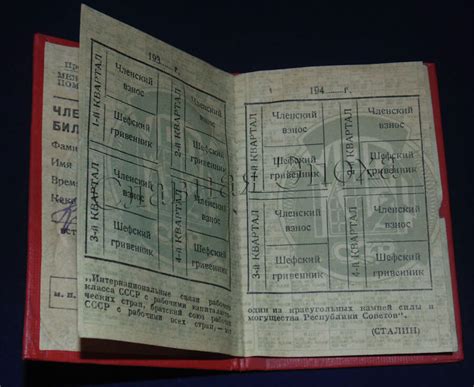 Пр
МЕЖ
ПОМ
ЧЛЕ
БИЛ
Фами
Имя
Время
м. п.
193 г.
1-й КВАРТАЛ
Членский взнос
Шефский гривенник
2-й КВАРТАЛ
Членский взнос
Шефский гривенник
3-й КВАРТАЛ
Членский взнос
Шефский гривенник
4-й КВАРТАЛ
Членский взнос
Шефский гривенник
„Интернациональные связи рабочего
класса СССР с рабочими капиталисти-
ческих стран, братский союз рабочих
СССР с рабочими всех стран,— вот
194 г.
1-й КВАРТАЛ
Членский взнос
Шефский гривенник
2-й КВАРТАЛ
Членский взнос
Шефский гривенник
3-й КВАРТАЛ
Членский взнос
Шефский гривенник
4-й КВАРТАЛ
Членский взнос
Шефский гривенник
один из краеугольных камней силы и
могущества Республики Советов".
(СТАЛИН)